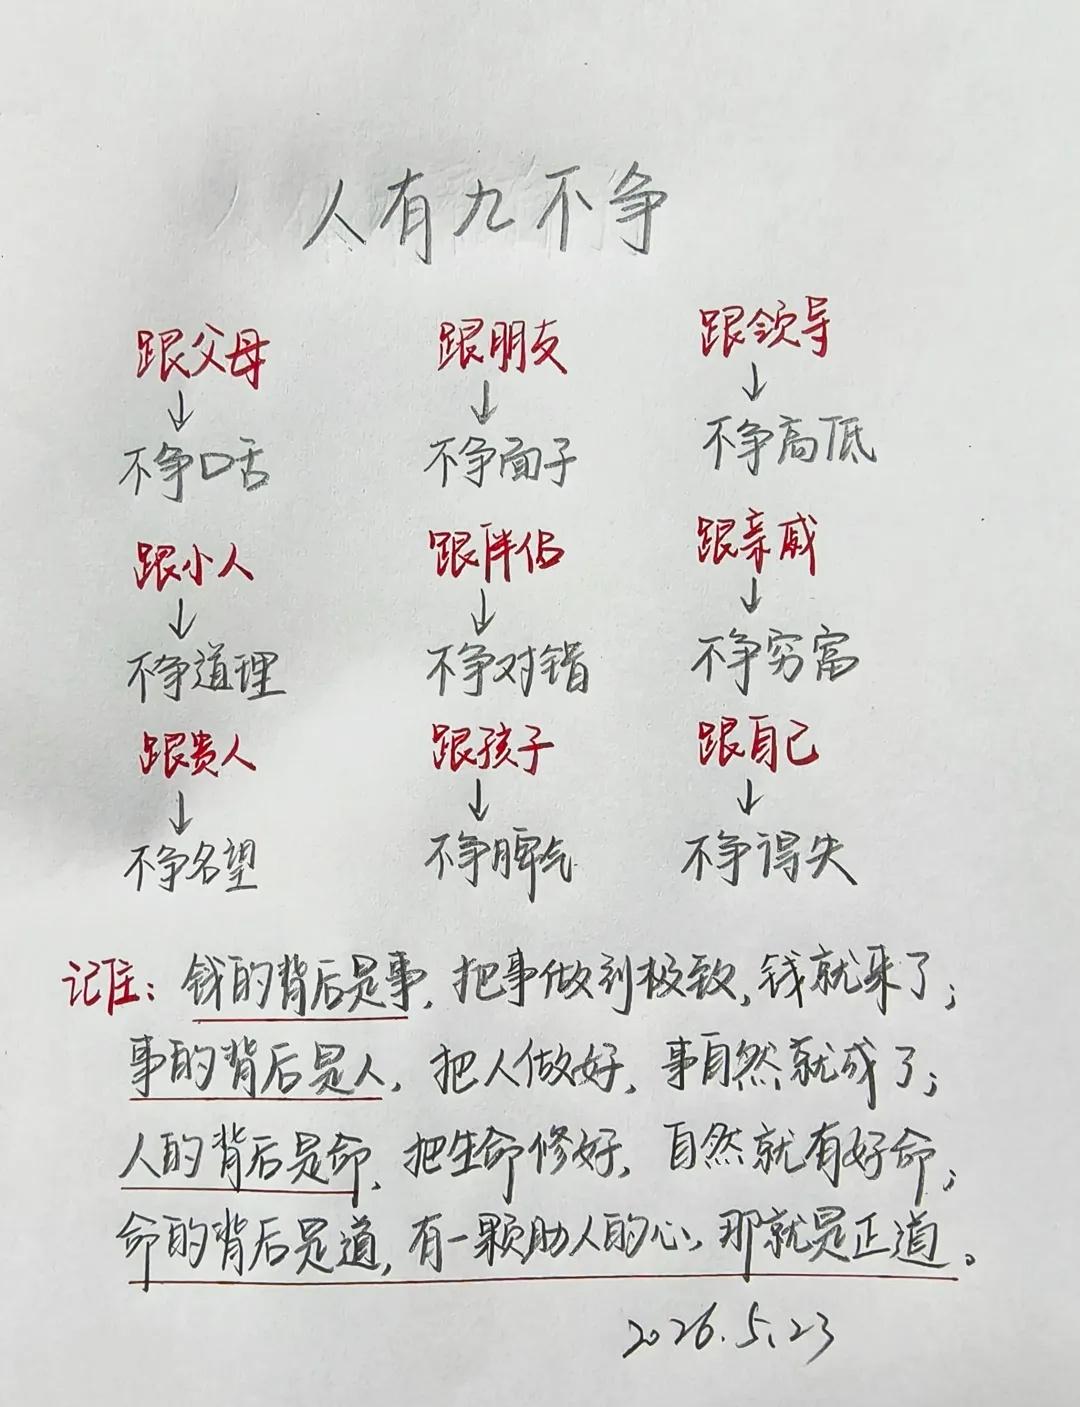 人有九不争
跟父母 跟朋友 跟领导
↓ ↓ ↓
不争口舌 不争面子 不争高低
跟小人 跟伴侣 跟亲戚
↓ ↓ ↓
不争道理 不争对错 不争穷富
跟贵人 跟孩子 跟自己
↓ ↓ ↓
不争名望 不争脾气 不争得失
记住：钱的背后是事，把事做到极致，钱就来了；
事的背后是人，把人做好，事自然就成了；
人的背后是命，把生命修好，自然就有好命；
命的背后是道，有一颗助人的心，那就是正道。
2026.5.23